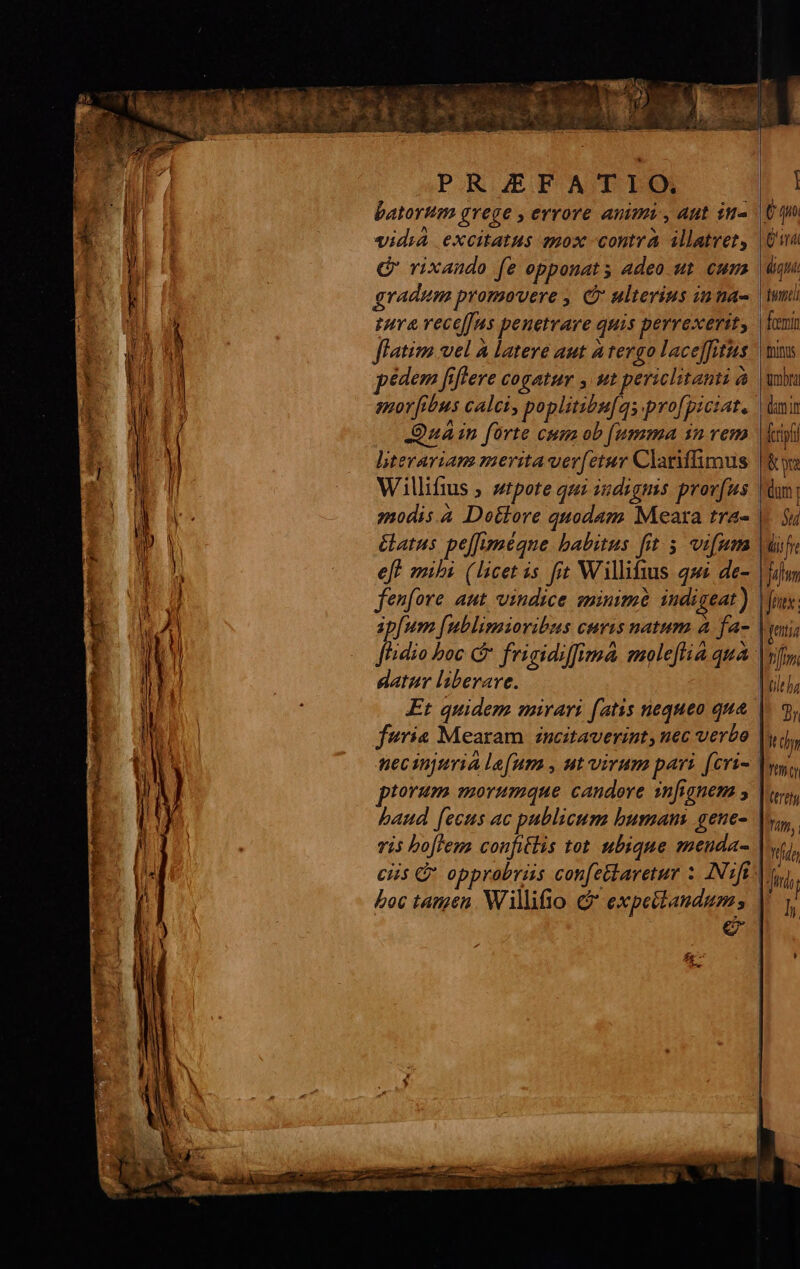 PRÆFATIO.
batorum grege, errore animi, aut in-
vidiâ excitatus mox contrà illatret,
& rixando ſe opponat; adeo ut cum
gradum promovere, & ulterius in na-
turæ receſſus penetrare quis perrexerit,
ſtatim vel à latere aut à tergo laceſſitus
pedem ſiſtere cogatur, ut periclitanti à
morſibus calci, poplitibuſq; proſpiciat.
Quâ in ſorte cum ob ſumma in rem
literariam merita verſetur Clariſſimus
Willifius, utpote qui indignis prorſus
modis à Doctore quodam Meara tra-
ctatus peſſiméque habitus ſit; viſum
eſt mihi (licet is ſit Willifius qui de-
fenſore aut vindice minimè indigeat)
ipſum ſublimioribus curis natum à fa-
ſtidio hoc & frigidiſſimâ moleſtiâ quâ
datur liberare.
Et quidem mirari ſatis nequeo quæ
furiæ Mearam incitaverint, nec verbo
nec injuriâ læſum, ut virum pari ſcri-
ptorum morumque candore inſignem,
haud ſecus ac publicum humani gene-
ris hoſtem confictis tot ubique menda-
ciis & opprobriis conſectaretur: Niſi
hoc tamen Willifio & expectandum,
&